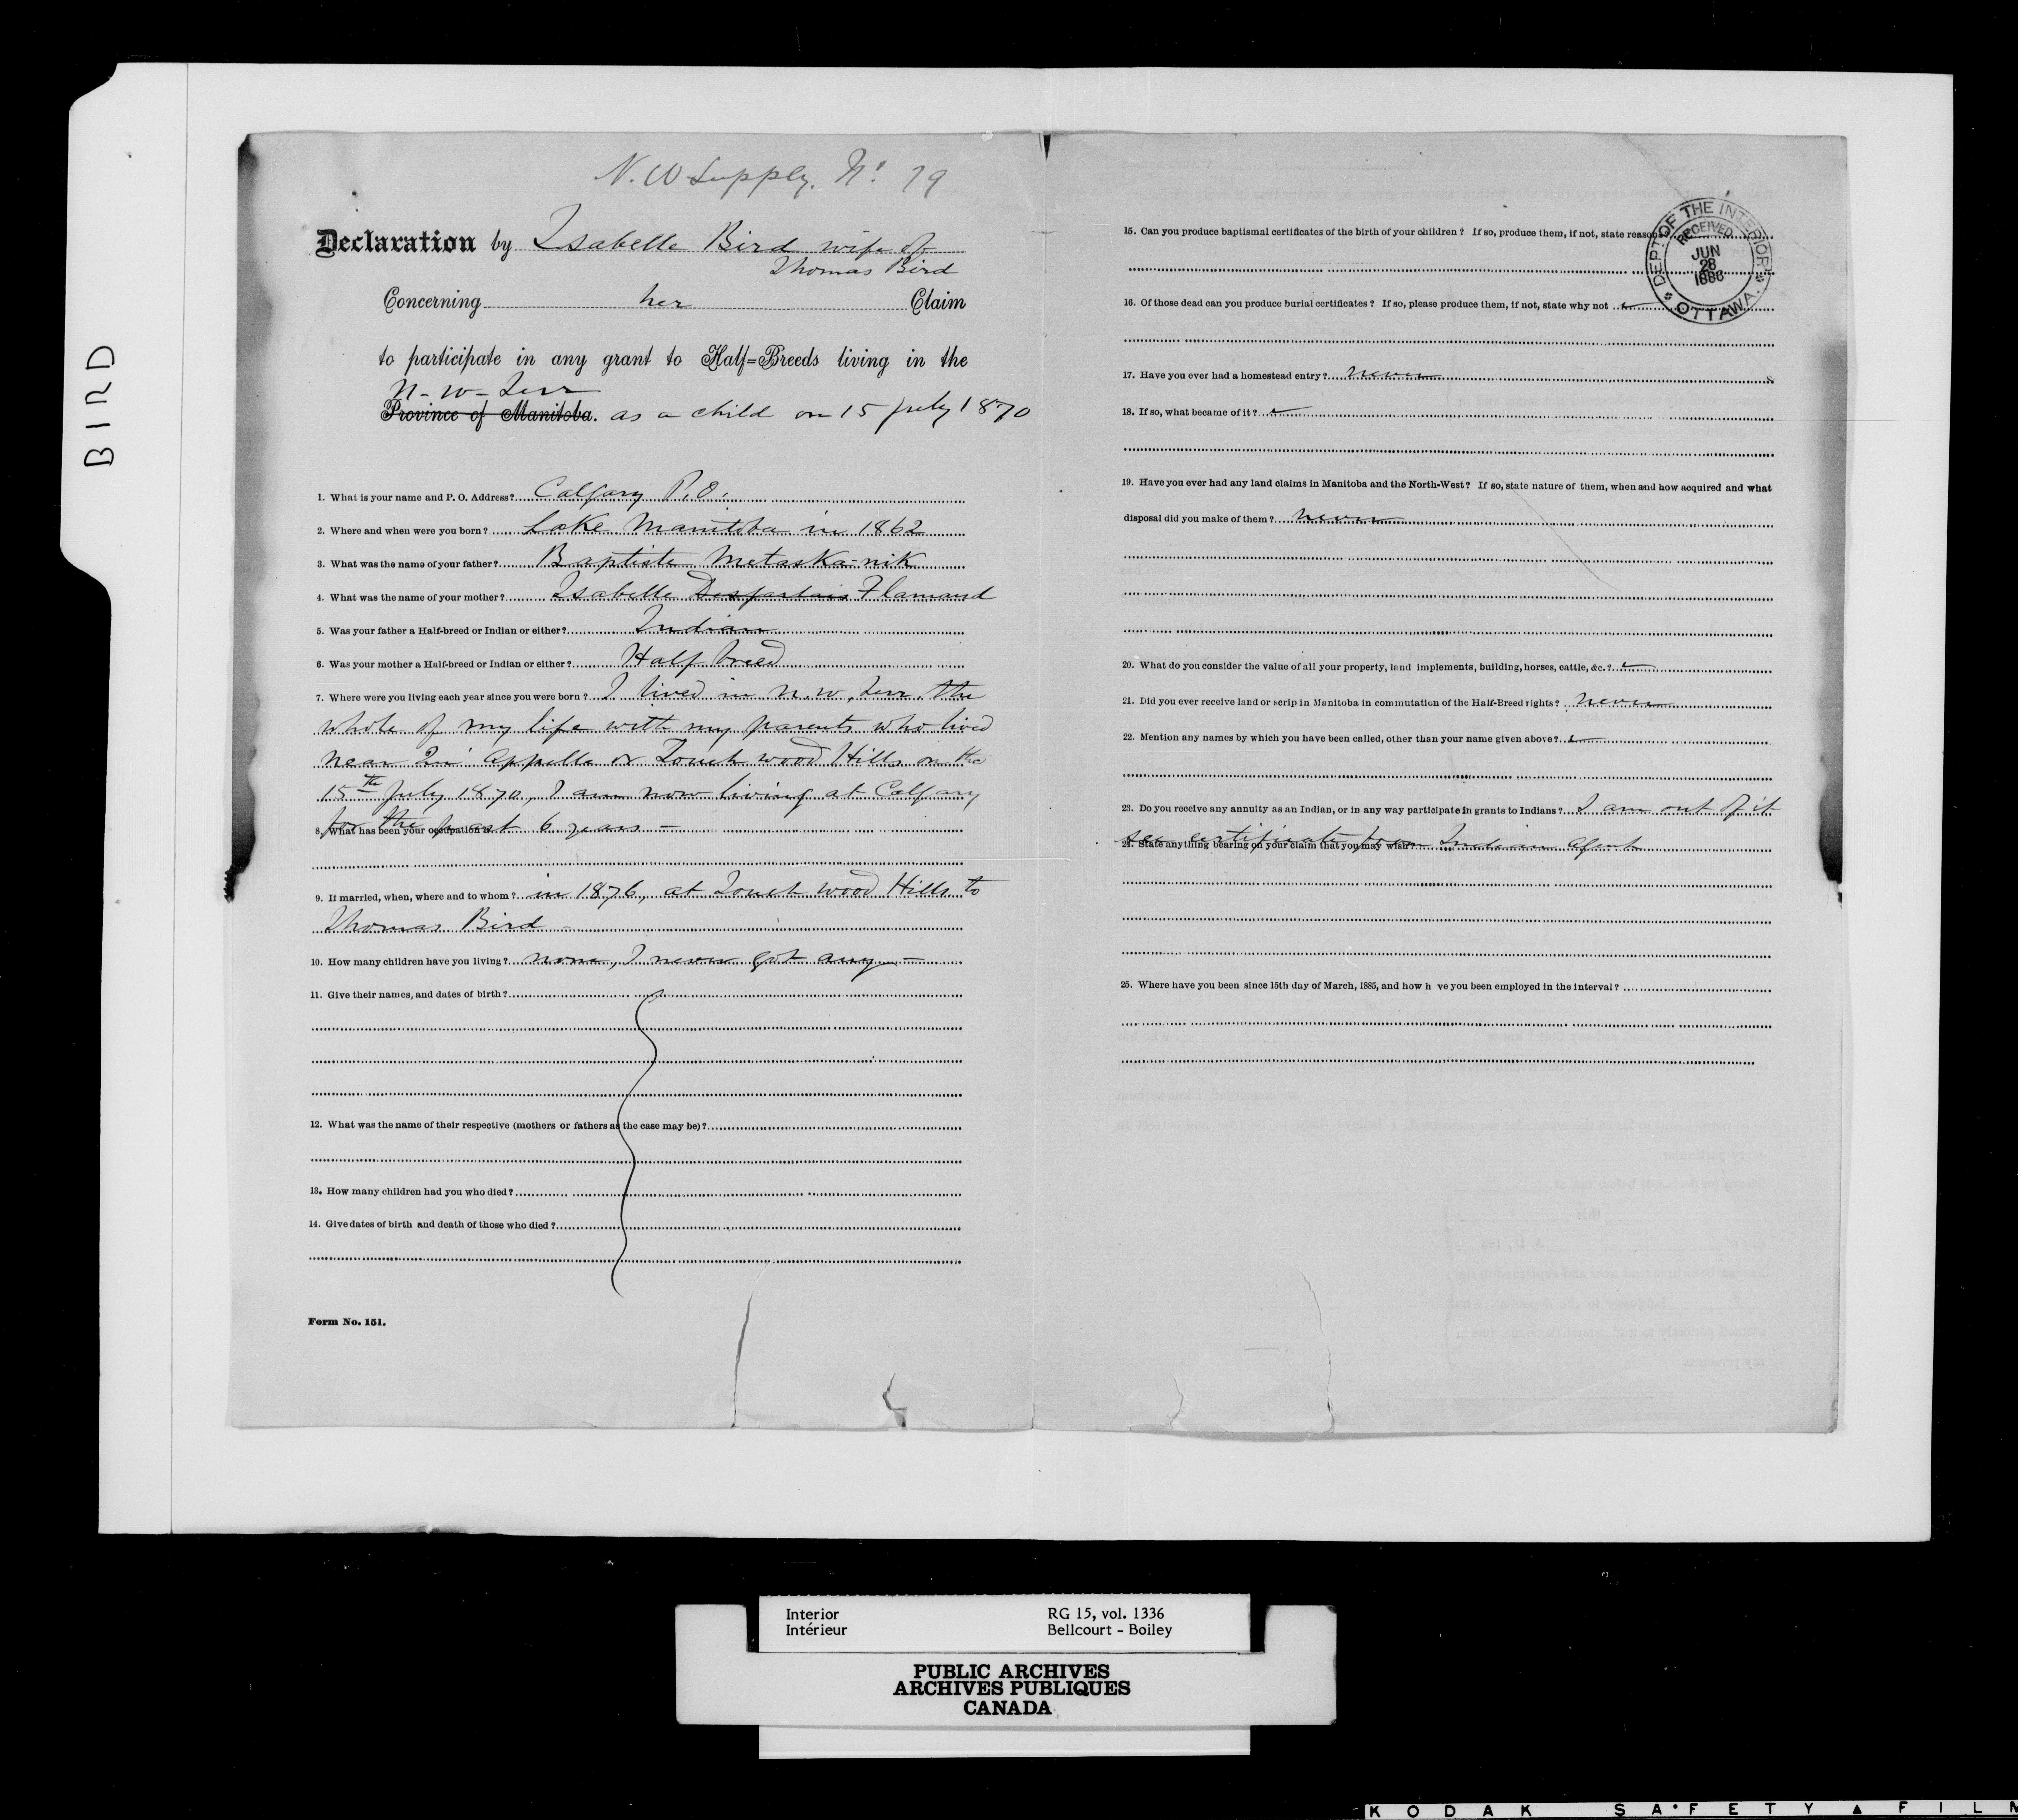 BIRD
N. W Supply. No. 79
Declaration by Isabelle Bird wife of
Thomas Bird
Concerning her Claim
to participate in any grant to Half=Breeds living in the
N-W-Terr
Province of Manitoba. as a child on 15 July 1870
1. What is your name and P. O. Address? Calgary P.O.
2. Where and when were you born? Lake Manitoba in 1862
3. What was the name of your father? Baptiste Metaska-nik
4. What was the name of your mother? Isabelle Desjarlais Flamand
5. Was your father a Half-breed or Indian or either? Indian
6. Was your mother a Half-breed or Indian or either? Half breed
7. Where were you living each year since you were born? I lived in N.W. Terr. the
whole of my life with my parents who lived
near Qu'Appelle or Touch wood Hills on the
15th July 1870, I am now living at Calgary
for the past 6 years -
8. What has been your occupation?
9. If married, when, where and to whom? in 1876, at Touch wood Hills to
Thomas Bird -
10. How many children have you living? none, I never got any -
11. Give their names, and dates of birth?
12. What was the name of their respective (mothers or fathers as the case may be)?
13. How many children had you who died?
14. Give dates of birth and death of those who died?
Form No. 151.
15. Can you produce baptismal certificates of the birth of your children? If so, produce them, if not, state reason
DEPT. OF THE INTERIOR
RECEIVED
JUN
28
1886
OTTAWA.
16. Of those dead can you produce burial certificates? If so, please produce them, if not, state why not
17. Have you ever had a homestead entry? never
18. If so, what became of it?
19. Have you ever had any land claims in Manitoba and the North-West? If so, state nature of them, when and how acquired and what
disposal did you make of them? never
20. What do you consider the value of all your property, land implements, building, horses, cattle, &c.?
21. Did you ever receive land or scrip in Manitoba in commutation of the Half-Breed rights? never
22. Mention any names by which you have been called, other than your name given above?
23. Do you receive any annuity as an Indian, or in any way participate in grants to Indians? I am out of it
see certificate from Indian Agent
24. State anything bearing on your claim that you may wish?
25. Where have you been since 15th day of March, 1885, and how h ve you been employed in the interval?
Interior RG 15, vol. 1336
Intérieur Bellcourt - Boiley
PUBLIC ARCHIVES
ARCHIVES PUBLIQUES
CANADA
KODAK SAFETY FILM